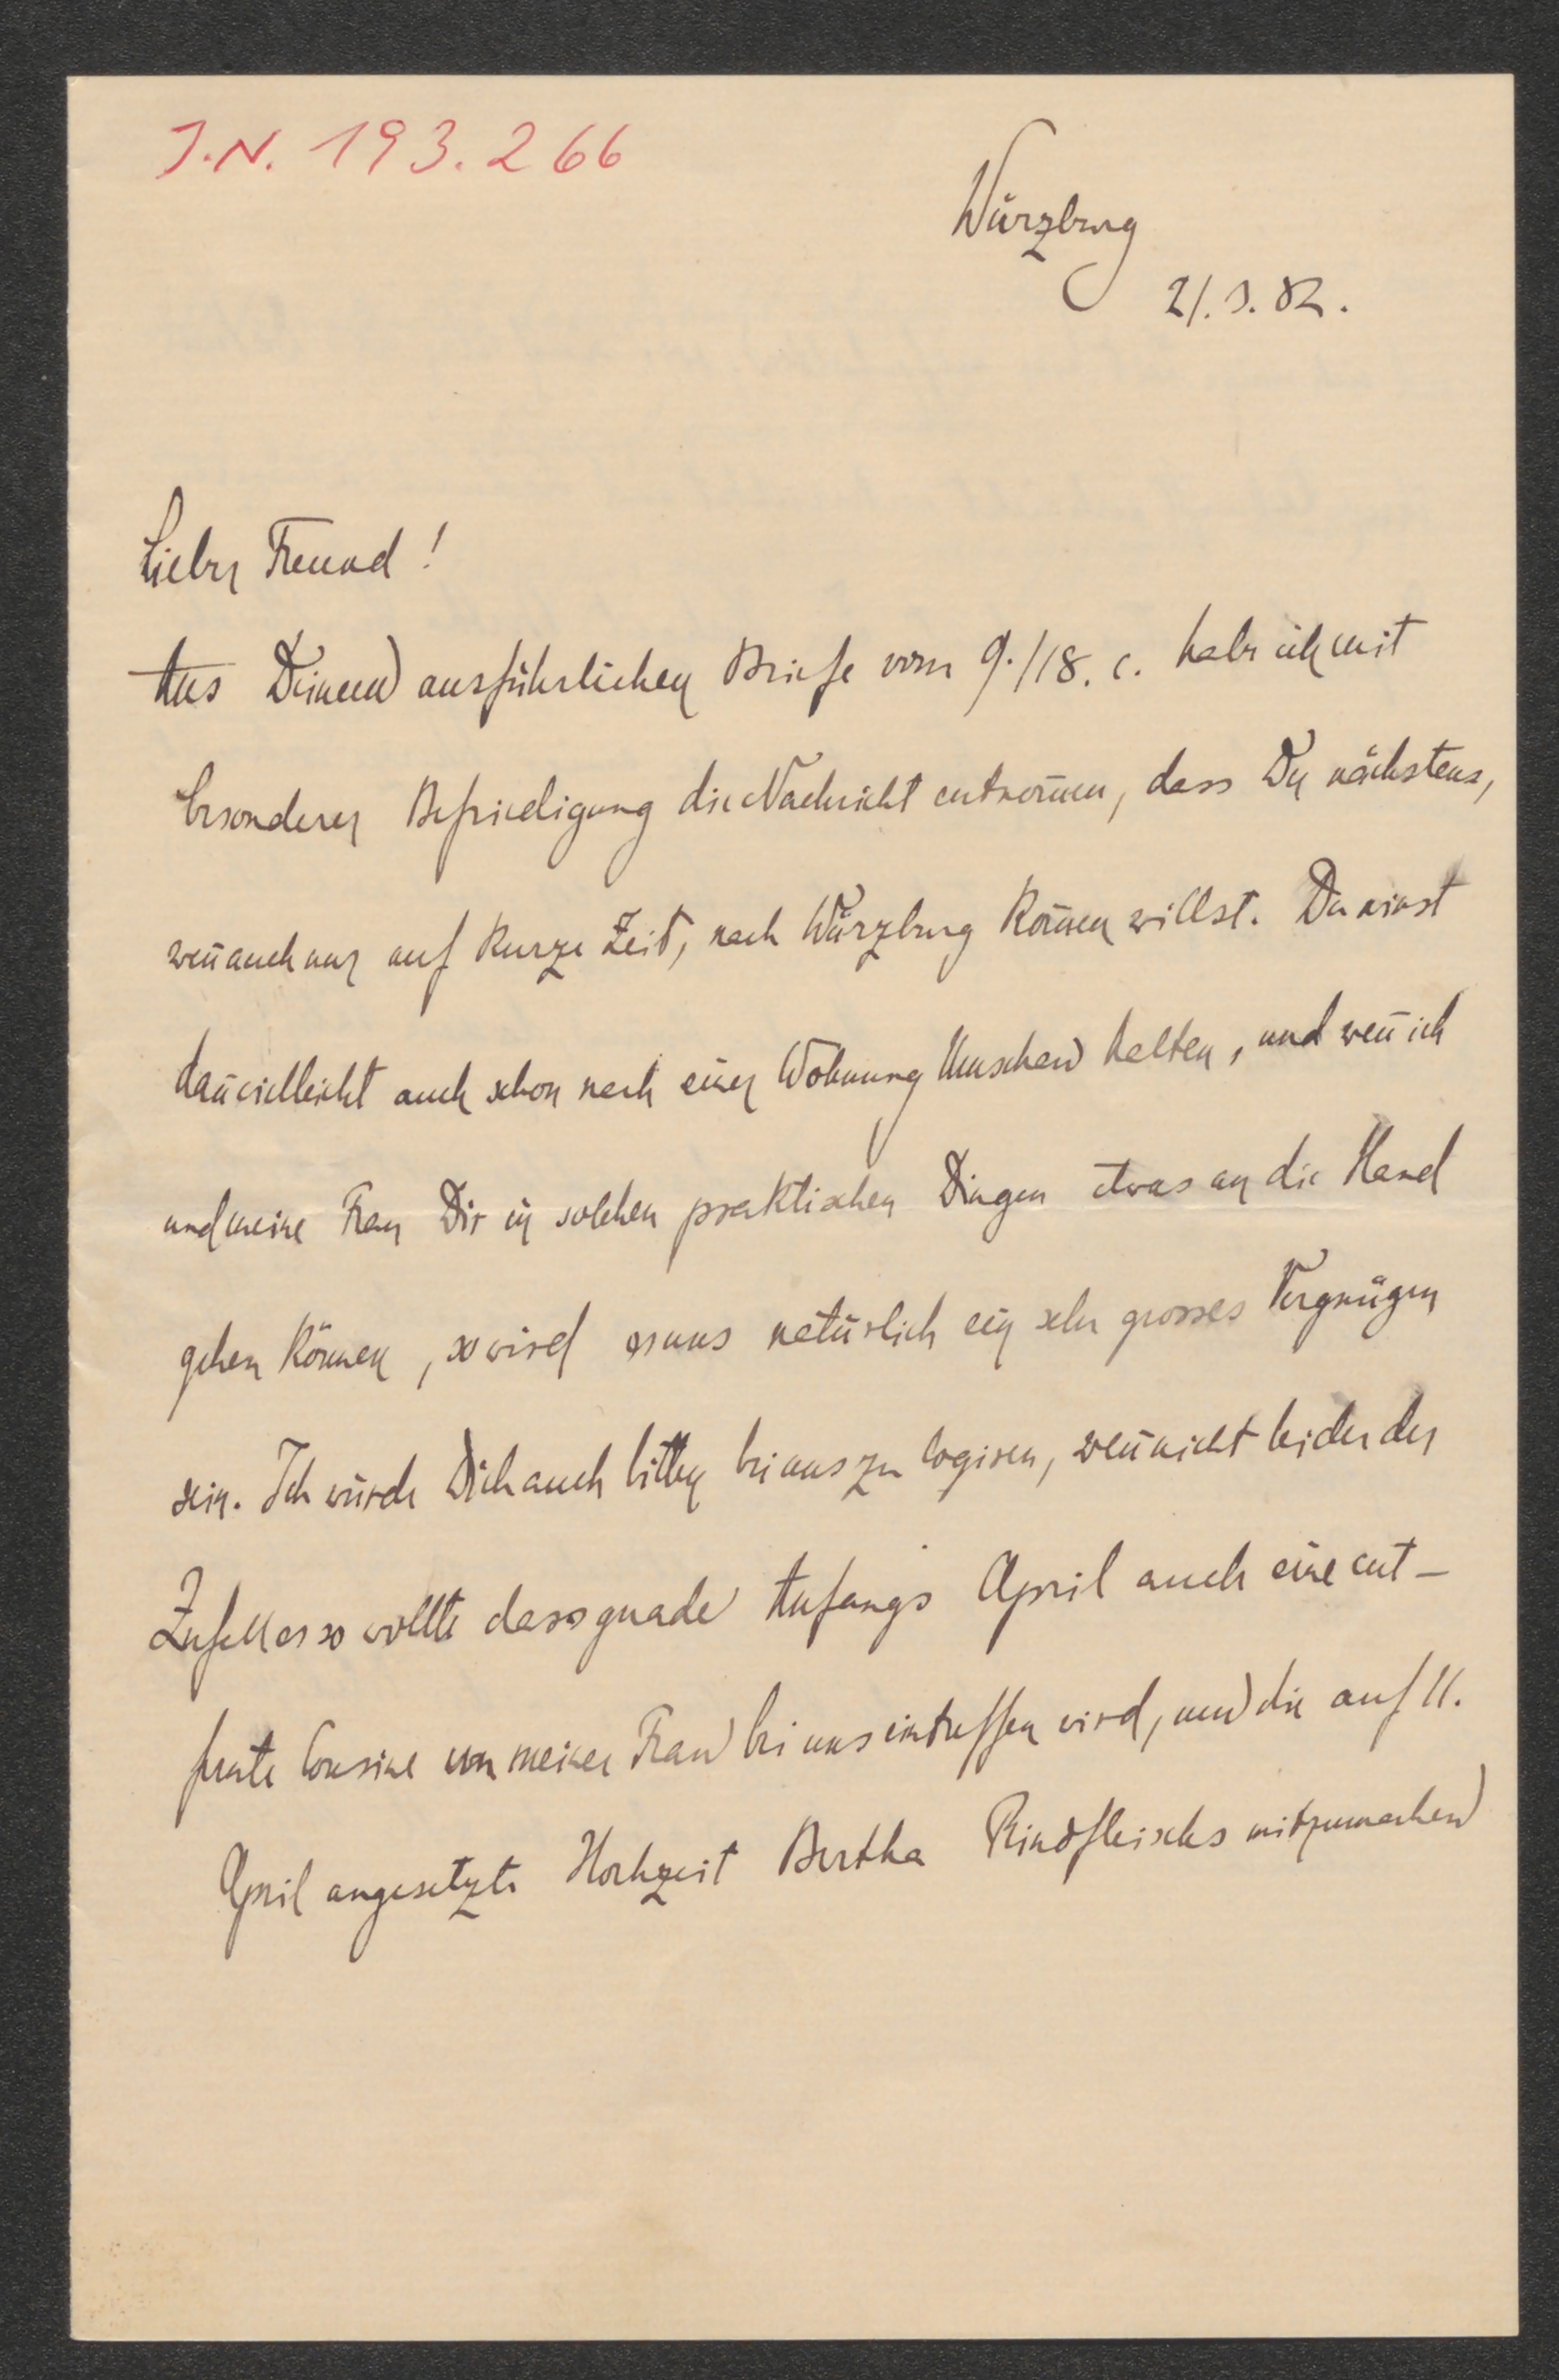 J.N. 193.266
Würzburg
21.3.82.
Lieber Freund!
Aus Deinem ausführlichen Briefe vom 9./18. c. habe ich mit
besonderer Befriedigung die Nachricht entnom̄en, dass Du nächstens,
wen̄ auch nur auf kurze Zeit, nach Würzburg kom̄en willst. Du wirst
dan̄ vielleicht auch schon nach einer Wohnung Umschau halten, und wen̄ ich
und meine Frau Dir in solchen praktischen Dingen etwas an die Hand
gehen können, so wird es uns natürlich ein sehr grosses Vergnügen
sein. Ich würde Dich auch bitten bei uns zu logiren, wen̄ nicht leider der
Zufall es so wollte dass gerade Anfangs April auch eine ent-
fernte Cousine von meiner Frau bei uns eintreffen wird, um die auf 11.
April angesetzte Hochzeit Bertha Rindfleischs mitzumachen